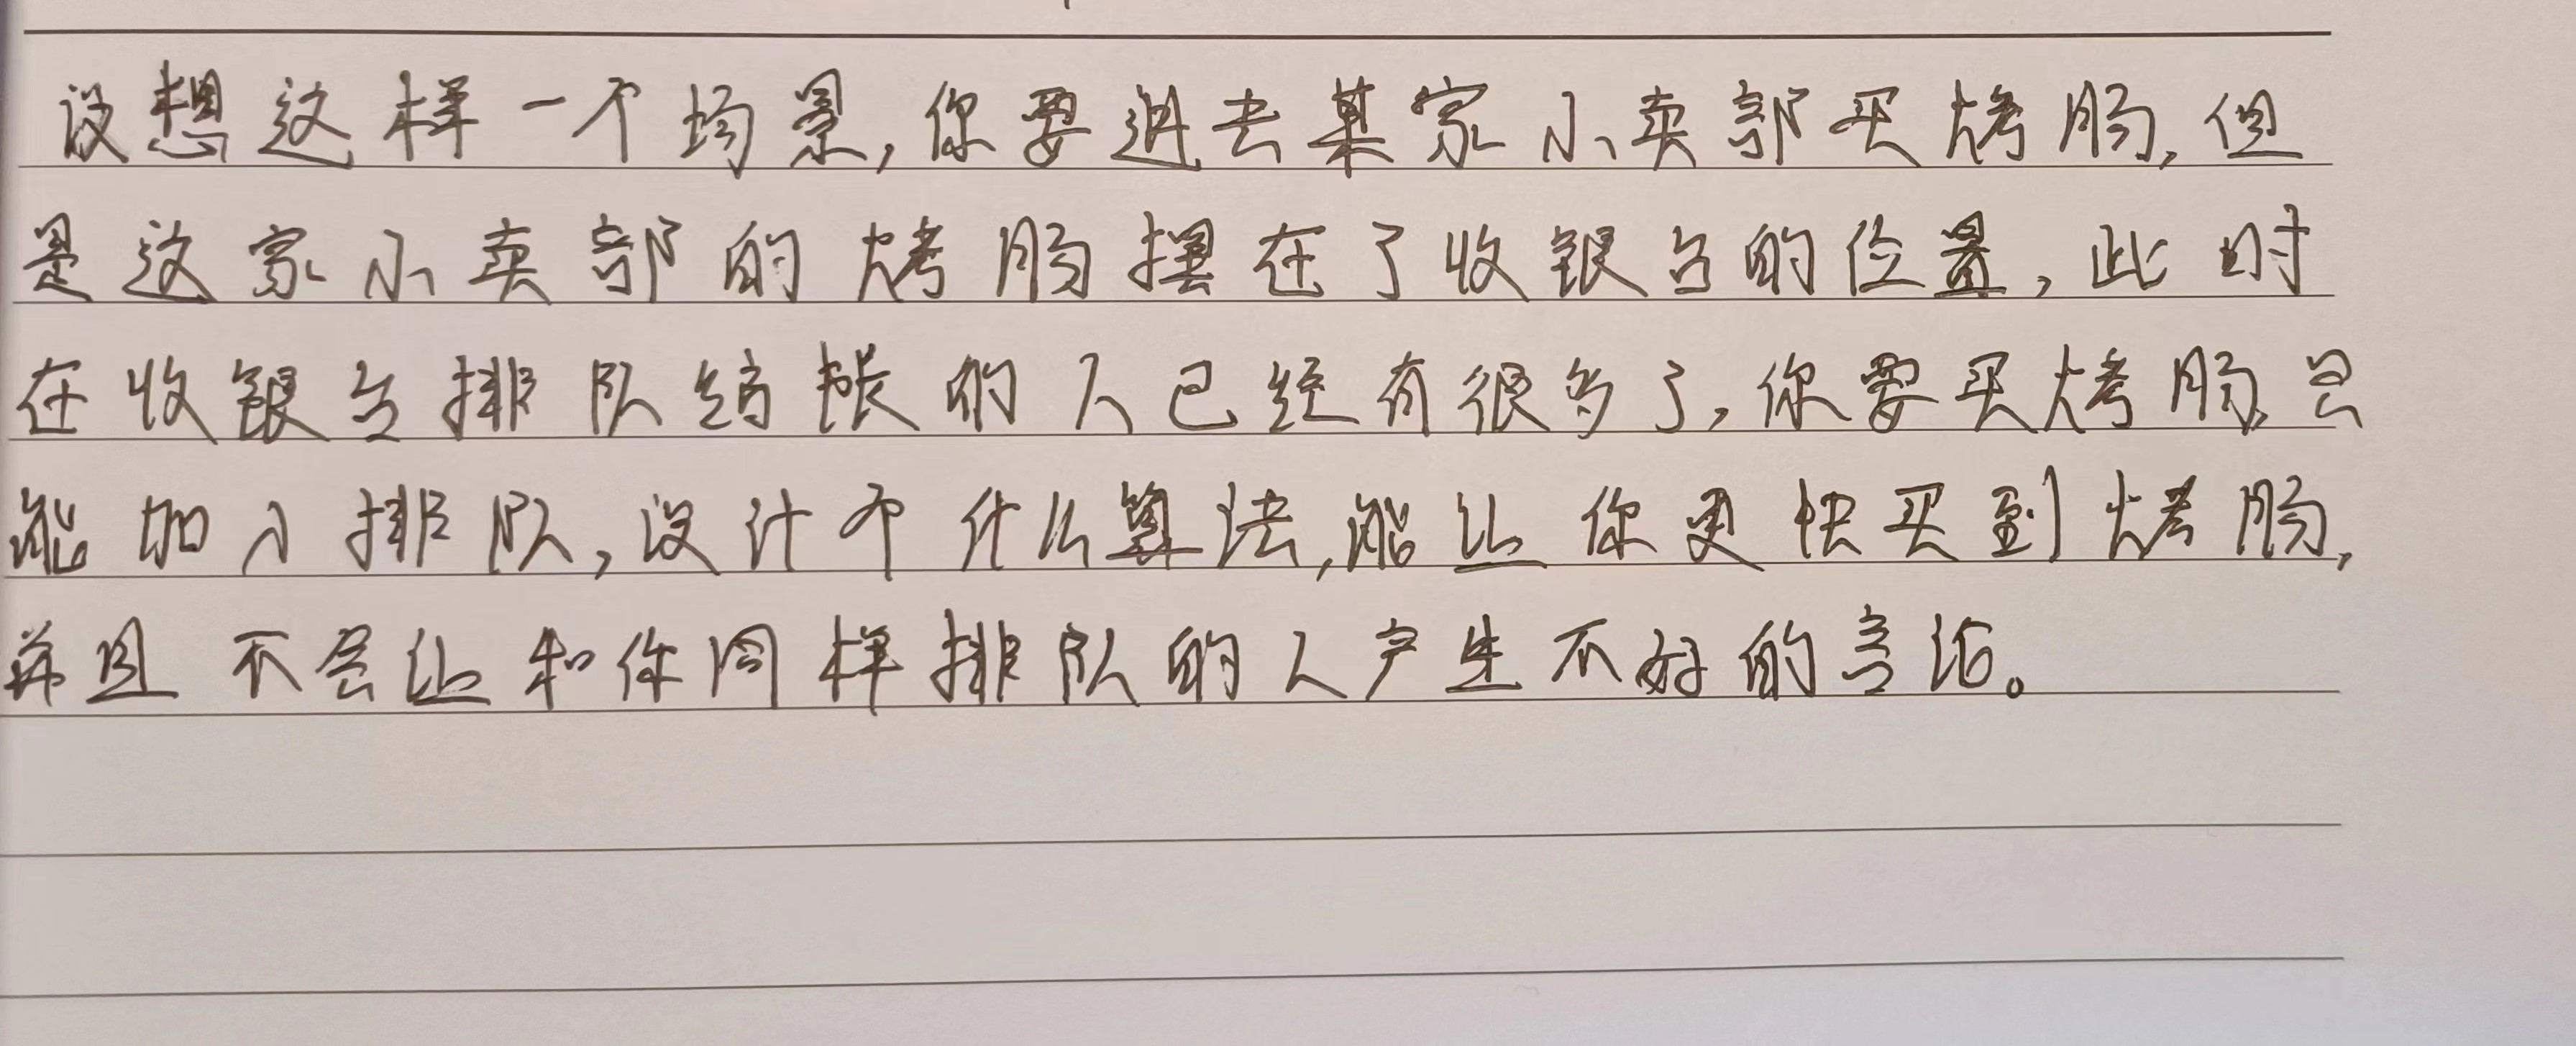 设想这样一个场景,你要进去某家小卖部买烤肠,但
是这家小卖部的烤肠摆在了收银台的位置,此时
在收银台排队结帐的人已经有很多了,你要买烤肠,只
能加入排队,设计个什么算法,能让你更快买到烤肠,
并且不会让和你同样排队的人产生不好的言论。